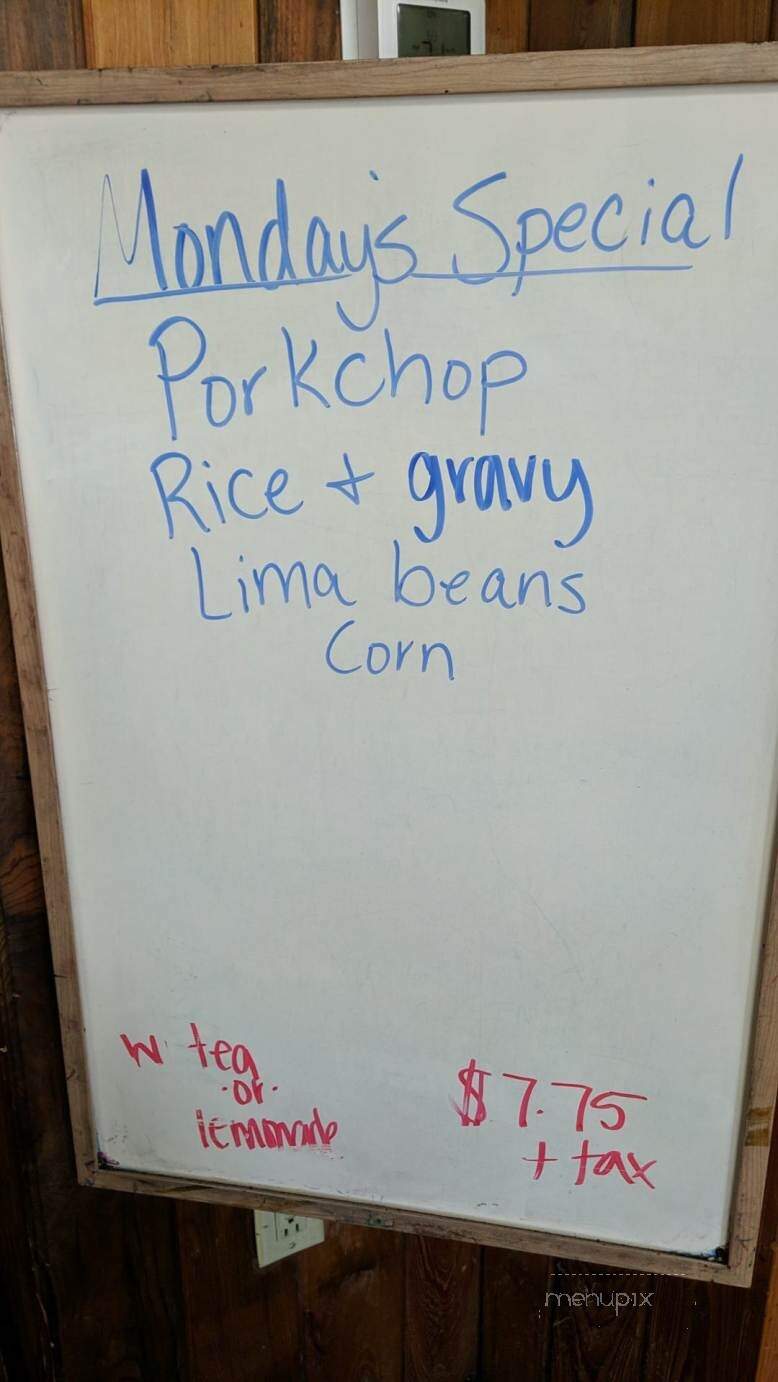 Monday's Special
Porkchop
Rice + gravy
Lima beans
Corn
w tea
·or·
lemonade
$7.75
+ tax
menupix